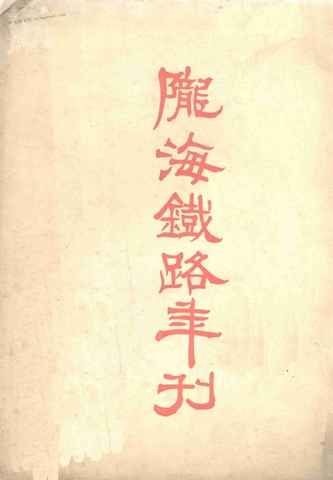 隴海鐵路年刊